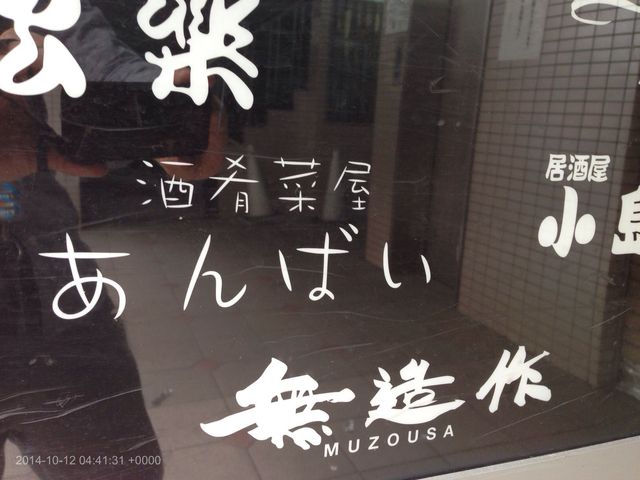 楽
酒肴菜屋
あんばい
居酒屋
小
無造作
MUZOUSA
2014-10-12 04:41:31 +0000